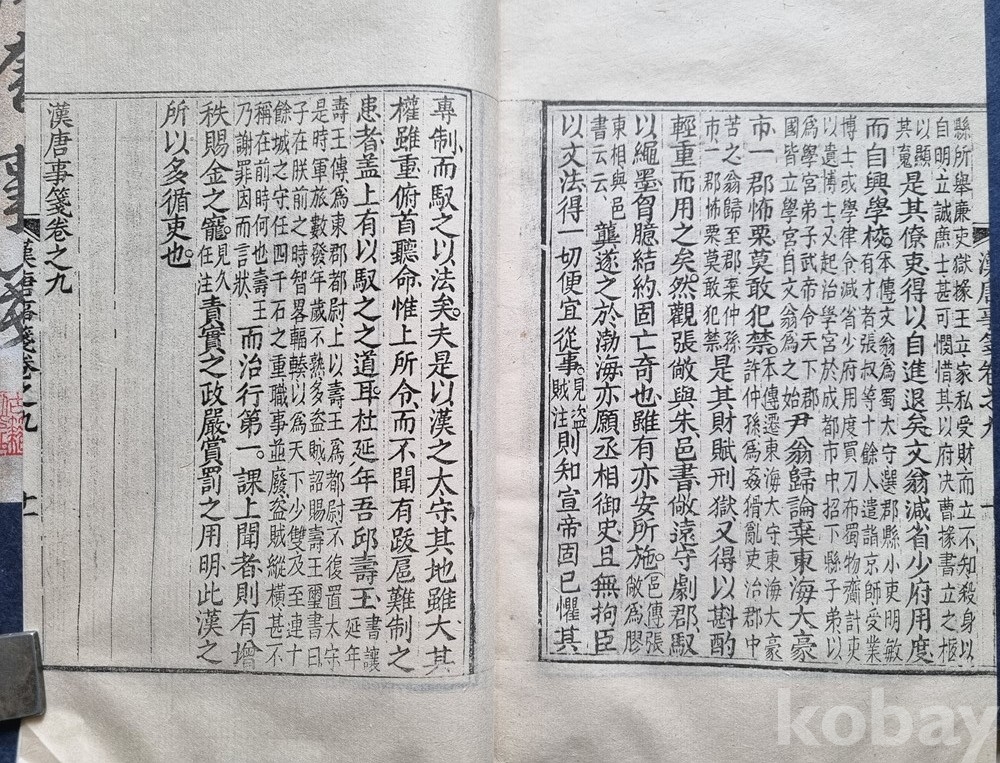 縣所舉廉吏獄掾王立家私受財而立不知殺身以
自明立誠廉士甚可憫惜其以府决曹掾書立之柩
以顯其䰟是其僚吏得以自進退矣文翁減省少府用度
而自興學校本傳文翁爲蜀太守選郡縣小吏明敏有才者張叔等十餘人遣詣京師受業
博士或學律令減省少府用度買刀布蜀物齎計吏
以遺博士又起治學宮於成都市中招下縣子弟以
爲學宮弟子武帝令天下郡國皆立學宮自文翁爲之始尹翁歸論棄東海大豪
市一郡怖栗莫敢犯禁本傳遷東海大守東海大豪許仲孫爲姦猾亂吏治郡中
苦之翁歸至郡棄仲孫市一郡怖栗莫敢犯禁是其財賦刑獄又得以斟酌
輕重而用之矣然觀張敞與朱邑書敞遠守劇郡馭
以繩墨胷臆結約固亡奇也雖有亦安所施邑傳張敞爲膠
東相與邑書云云龔遂之於渤海亦願丞相御史且無拘臣
以文法得一切便宜從事見盜賊注則知宣帝固已懼其
專制而馭之以法矣夫是以漢之太守其地雖大其
權雖重俯首聽命惟上所令而不聞有跋扈難制之
患者盖上有以馭之之道耳杜延年吾邱壽王書讓延年
壽王傳爲東郡都尉上以壽王爲都尉不復置太守
是時軍旅數發年歲不熟多盗賊詔賜壽王璽書曰
子在朕前之時智畧輻輳以爲天下少雙及至連十
餘城之守任四千石之重職事並廢盗賊縱橫甚不
稱在前時何也壽王乃謝罪因而言狀而治行第一課上聞者則有增
秩賜金之寵見久任注責實之政嚴賞罰之用明此漢之
所以多循吏也
漢唐事箋卷之九
漢唐事箋卷之九
漢唐事箋卷之九
kobay